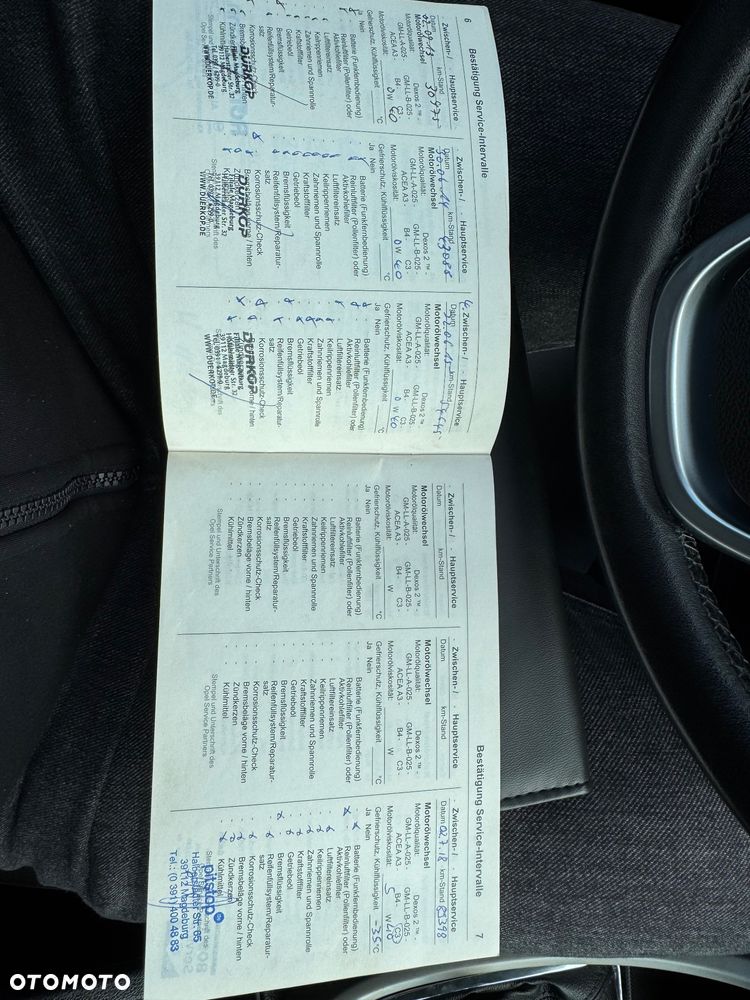 6 Bestätigung Service-Intervalle
Zwischen- / Hauptservice
Datum km-Stand
30975
Motorölwechsel
Motorölqualität: Dexos 2 ™ -
GM-LL-A-025 - GM-LL-B-025 -
ACEA A3 - B4 - C3 -
Motorölviskosität: 0 W 40
Gefrierschutz, Kühlflüssigkeit °C
Ja Nein
Batterie (Funkfernbedienung)
Reinluftfilter (Pollenfilter) oder
Aktivkohlefilter
Luftfiltereinsatz
Keilrippenriemen
Zahnriemen und Spannrolle
Kraftstofffilter
Getriebeöl
Bremsflüssigkeit
Reifenfüllsystem/Reparatur-
satz
Korrosionsschutz-Check
DÜRKOP
Filiale Magdeburg
Halberstädter Str. 32
39112 Magdeburg
WWW.DUERKOP.DE
Zwischen- / Hauptservice
Datum km-Stand
30.06.14 43085
Motorölwechsel
Motorölqualität: Dexos 2 ™ -
GM-LL-A-025 - GM-LL-B-025 -
ACEA A3 - B4 - C3 -
Motorölviskosität: 0 W 40
Gefrierschutz, Kühlflüssigkeit °C
Ja Nein
Batterie (Funkfernbedienung)
Reinluftfilter (Pollenfilter) oder
Aktivkohlefilter
Luftfiltereinsatz
Keilrippenriemen
Zahnriemen und Spannrolle
Kraftstofffilter
Getriebeöl
Bremsflüssigkeit
Reifenfüllsystem/Reparatur-
satz
Korrosionsschutz-Check
DÜRKOP
Halberstädter Str. 32
39112 Magdeburg
WWW.DUERKOP.DE
Zwischen- / Hauptservice
Datum km-Stand
Motorölwechsel
Motorölqualität: Dexos 2 ™ -
GM-LL-A-025 - GM-LL-B-025 -
ACEA A3 - B4 - C3 -
Motorölviskosität: 0 W 40
Gefrierschutz, Kühlflüssigkeit °C
Ja Nein
Batterie (Funkfernbedienung)
Reinluftfilter (Pollenfilter) oder
Aktivkohlefilter
Luftfiltereinsatz
Keilrippenriemen
Zahnriemen und Spannrolle
Kraftstofffilter
Getriebeöl
Bremsflüssigkeit
Reifenfüllsystem/Reparatur-
satz
Korrosionsschutz-Check
DÜRKOP
39112 Magdeburg
WWW.DUERKOP.DE
Bestätigung Service-Intervalle 7
Zwischen- / Hauptservice
Datum km-Stand
Motorölwechsel
Motorölqualität: Dexos 2 ™ -
GM-LL-A-025 - GM-LL-B-025 -
ACEA A3 - B4 - C3 -
Motorölviskosität: W
Gefrierschutz, Kühlflüssigkeit °C
Ja Nein
Batterie (Funkfernbedienung)
Reinluftfilter (Pollenfilter) oder
Aktivkohlefilter
Luftfiltereinsatz
Keilrippenriemen
Zahnriemen und Spannrolle
Kraftstofffilter
Getriebeöl
Bremsflüssigkeit
Reifenfüllsystem/Reparatur-
satz
Korrosionsschutz-Check
Bremsbeläge vorne / hinten
Zündkerzen
Kühlmittel
Stempel und Unterschrift des
Opel Service Partners
Zwischen- / Hauptservice
Datum km-Stand
Motorölwechsel
Motorölqualität: Dexos 2 ™ -
GM-LL-A-025 - GM-LL-B-025 -
ACEA A3 - B4 - C3 -
Motorölviskosität: W
Gefrierschutz, Kühlflüssigkeit °C
Ja Nein
Batterie (Funkfernbedienung)
Reinluftfilter (Pollenfilter) oder
Aktivkohlefilter
Luftfiltereinsatz
Keilrippenriemen
Zahnriemen und Spannrolle
Kraftstofffilter
Getriebeöl
Bremsflüssigkeit
Reifenfüllsystem/Reparatur-
satz
Korrosionsschutz-Check
Bremsbeläge vorne / hinten
Zündkerzen
Kühlmittel
Stempel und Unterschrift des
Opel Service Partners
Zwischen- / Hauptservice
Datum 02.7.18 km-Stand 83398
Motorölwechsel
Motorölqualität: Dexos 2 ™ -
GM-LL-A-025 - GM-LL-B-025 -
ACEA A3 - B4 - C3
Motorölviskosität: 5 W 40
Gefrierschutz, Kühlflüssigkeit -35 °C
Ja Nein
Batterie (Funkfernbedienung)
Reinluftfilter (Pollenfilter) oder
Aktivkohlefilter
Luftfiltereinsatz
Keilrippenriemen
Zahnriemen und Spannrolle
Kraftstofffilter
Getriebeöl
Bremsflüssigkeit
Reifenfüllsystem/Reparatur-
satz
Korrosionsschutz-Check
Bremsbeläge vorne / hinten
Zündkerzen
Kühlmittel
pitstop
Halberstädter Str. 65
39112 Magdeburg
Tel.: (0 391) 400 48 83
OTOMOTO